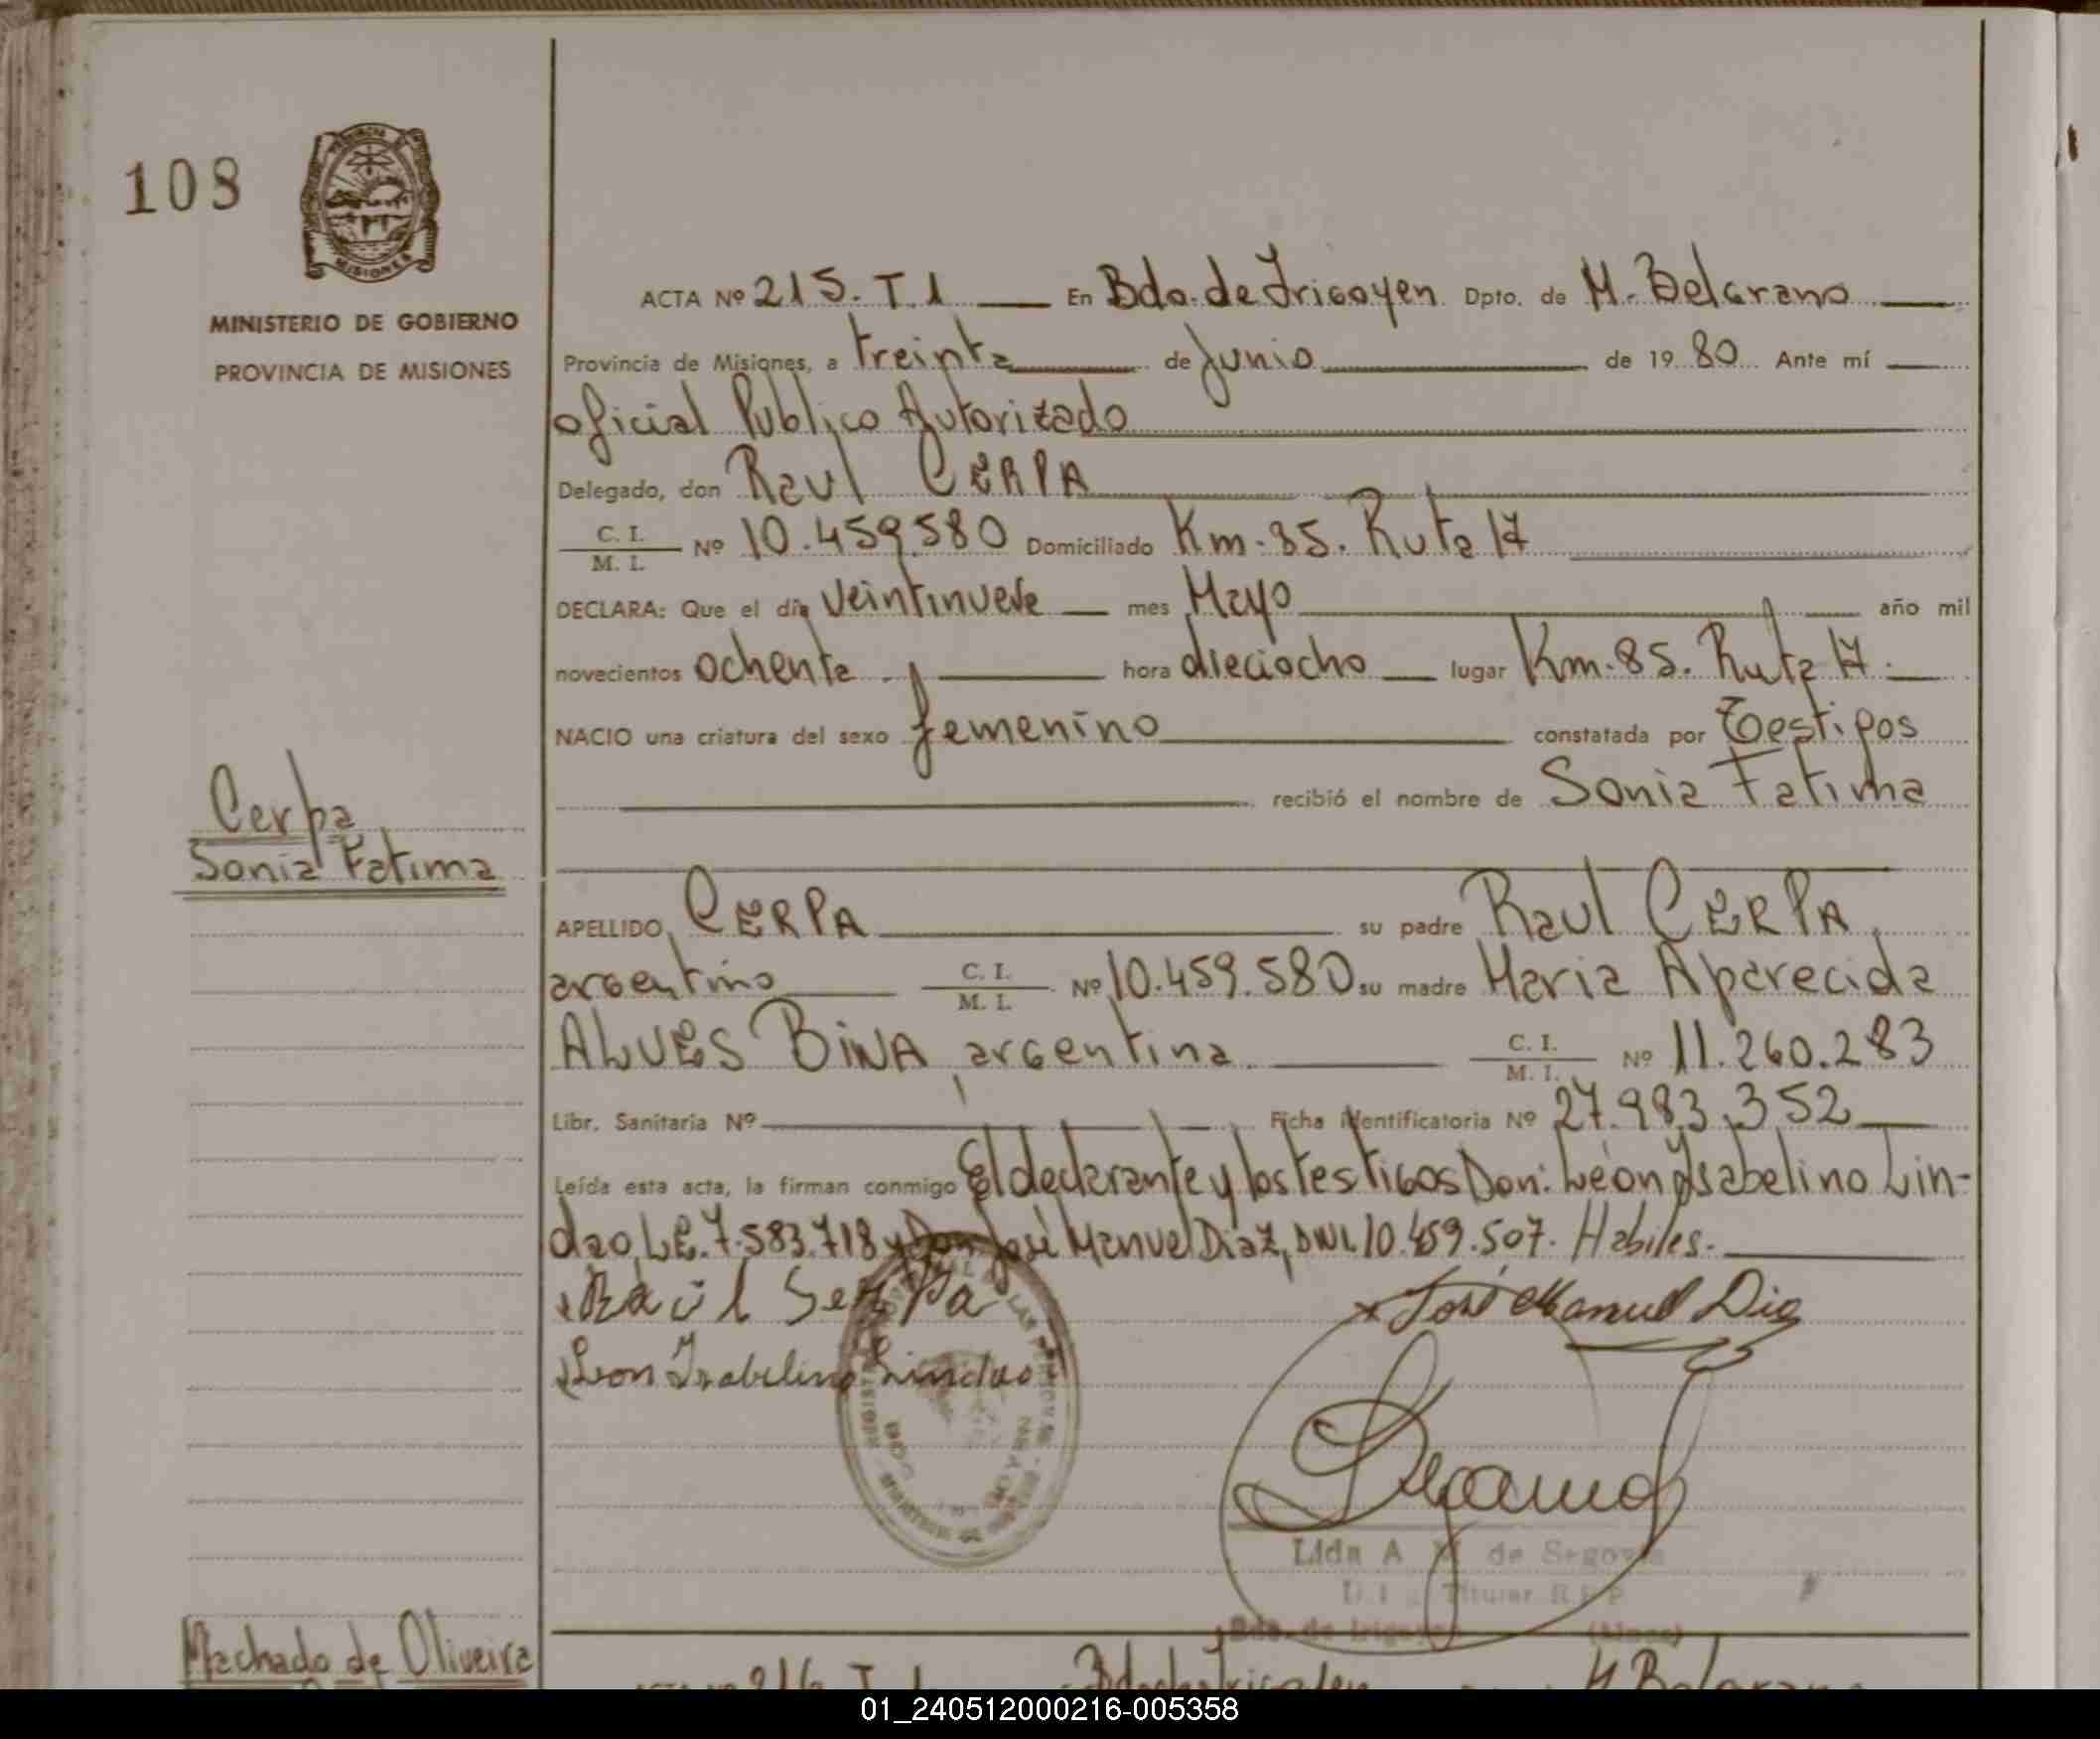 108
PROVINCIA
MISIONES
MINISTERIO DE GOBIERNO
PROVINCIA DE MISIONES
ACTA Nº 215. T.1 En Bdo. de Irigoyen Dpto. de M. Belgrano
Provincia de Misiones, a treinta de Junio de 1980 Ante mí
oficial Publico Autorizado
Delegado, don Raul CERPA
C. I. / M. I. Nº 10.459.580 Domiciliado Km. 85. Ruta 17
DECLARA: Que el día veintinueve mes Mayo año mil
novecientos ochenta hora dieciocho lugar Km. 85. Ruta 17.
NACIO una criatura del sexo femenino constatada por Testigos
recibió el nombre de Sonia Fatima
Cerpa
Sonia Fatima
APELLIDO CERPA su padre Raul CERPA,
argentino C. I. / M. I. Nº 10.459.580 su madre Maria Aparecida
ALVES BINA, argentina C. I. / M. I. Nº 11.260.283
Libr. Sanitaria Nº Ficha identificatoria Nº 27.983.352
Leída esta acta, la firman conmigo El declarante y los testigos Don: León Ysabelino Lin-
dao, L.E. 7.583.718 y Don José Manuel Diaz, DNI. 10.459.507. Habiles.
Raúl Serpa
José Manuel Diaz
Leon Isabelino Lindao
Lida A M de Segovia
Titular
Bdo. de Irigoyen (Mnes)
Machado de Oliveira
ACTA Nº 216 T. 1 Bdo de Irigoyen M. Belgrano
01_240512000216-005358